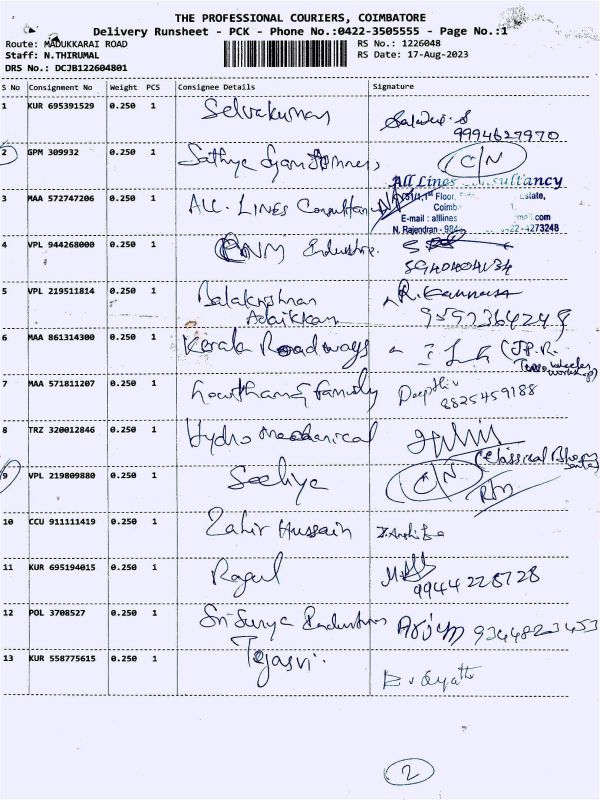 THE PROFESSIONAL COURIERS, COIMBATORE
Delivery Runsheet - PCK - Phone No.:0422-3505555 - Page No.:1
Route: MADUKKARAI ROAD RS No.: 1226048
Staff: N.THIRUMAL RS Date: 17-Aug-2023
DRS No.: DCJB122604801
S No Consignment No Weight PCS Consignee Details Signature
1 KUR 695391529 0.250 1 Selvakumar
9994627970
2 GPM 309932 0.250 1 Sathya C/N
3 MAA 572747206 0.250 1 ALL. LINES Consultancy All Lines Consultancy
Floor, Estate,
Coimb
E-mail : alllines .com
N. Rajendran - 984 4273248
4 VPL 944268000 0.250 1 Industries
5 VPL 219511814 0.250 1 Balakrishnan
Adaikkan
6 MAA 861314300 0.250 1 Kerala Roadways
7 MAA 571811207 0.250 1 Gowtham & family Deepthi
8825459188
8 TRZ 320012846 0.250 1 Hydro mechanical
(Classical
9 VPL 219809880 0.250 1 C/N
10 CCU 911111419 0.250 1 Zahir Hussain
11 KUR 695194015 0.250 1 Ragul
9944228728
12 POL 3708527 0.250 1 Sri Surya Industries Arjun 9344823453
13 KUR 558775615 0.250 1 Tejasvi.
2